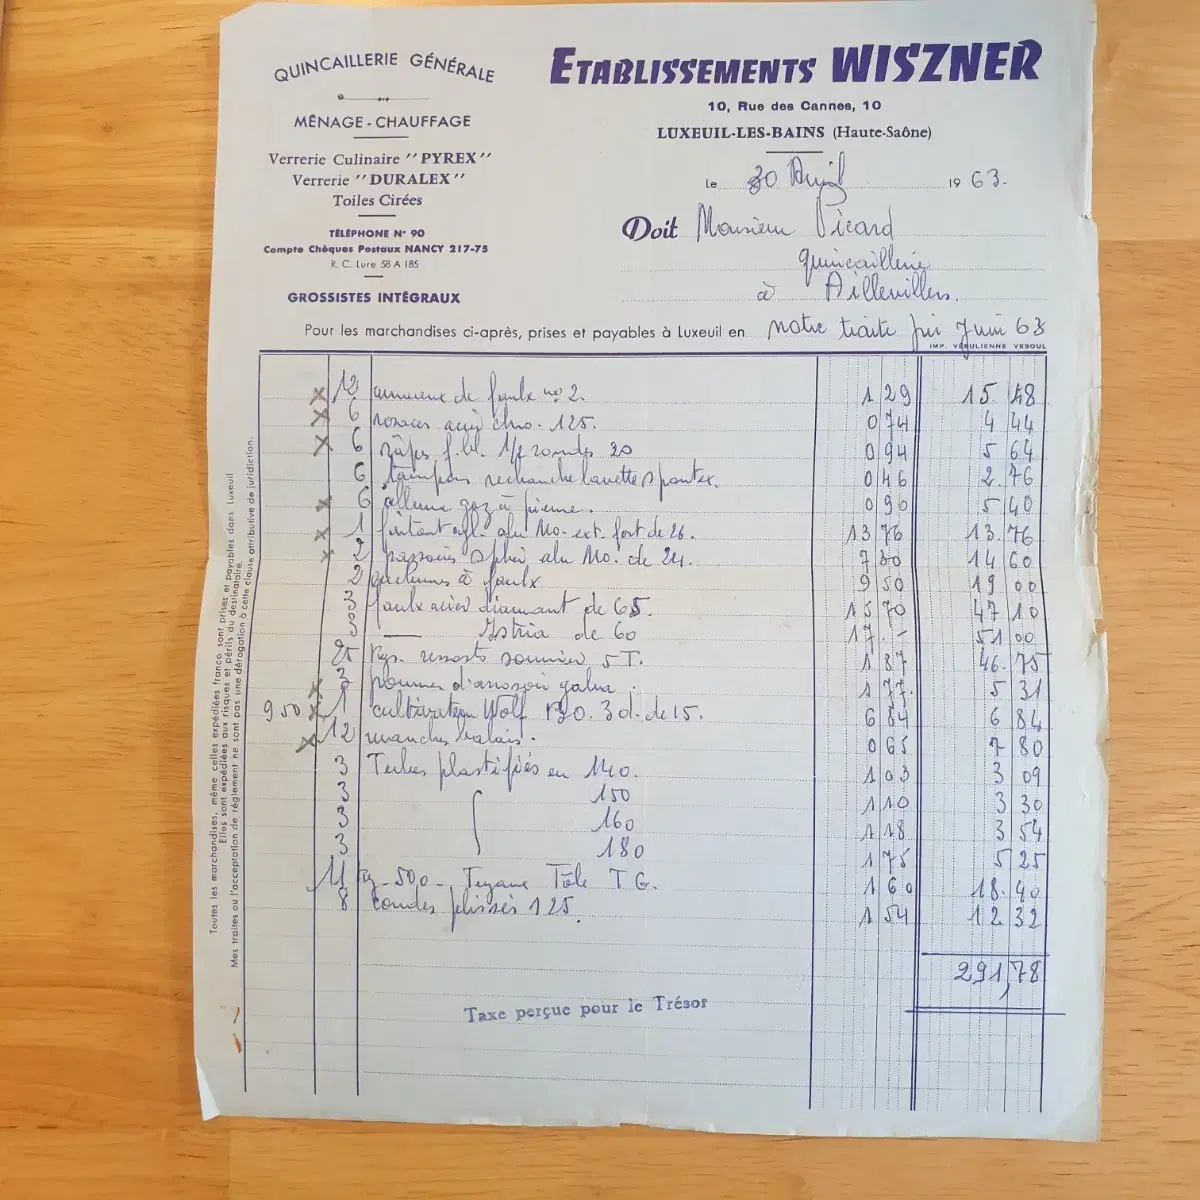 QUINCAILLERIE GÉNÉRALE
MÉNAGE - CHAUFFAGE
Verrerie Culinaire "PYREX"
Verrerie "DURALEX"
Toiles Cirées
TÉLÉPHONE N° 90
Compte Chèques Postaux NANCY 217-75
R. C. Lure 58 A 185
GROSSISTES INTÉGRAUX
ETABLISSEMENTS WISZNER
10, Rue des Cannes, 10
LUXEUIL-LES-BAINS (Haute-Saône)
le 30 Avril 1963.
Doit Monsieur Picard
quincaillerie
à Aillevillers.
Pour les marchandises ci-après, prises et payables à Luxeuil en notre traite fin Juin 63
IMP. VÉSULIENNE VESOUL
x 12 anneaux de faulx no 2. 1 29 15. 48
x 6 rosaces acier chro. 125. 0 74 4 44
x 6 râpes 1/2 rondes 20 0 94 5 64
6 tampons rechanche lavette spontex. 0 46 2. 76
x 6 allume gaz à pierre. 0 90 5 40
x 1 alu Mo. ext. fort de 26. 13 76 13. 76
x 2 passoires sphér alu Mo. de 24. 7 30 14 60
2 enclumes à faulx 9 50 19 00
3 faulx acier diamant de 65. 15 70 47 10
3 — Istria de 60 17. - 51 00
25 Kgs. ressorts sommier 5 T. 1 87 46. 75
x 3 pommes d'arrosoir galva. 1 77. 5 31
950 x 1 cultivateur Wolf 3 d. de 15. 6 84 6 84
x 12 manches balais. 0 65 7 80
3 Tubes plastifiés en 140. 1 03 3 09
3 150 1 10 3 30
3 160 1 18 3 54
3 180 1 75 5 25
11 Kg 500 Tuyaux Tôle T G. 1 60 18. 40
8 coudes plissés 125. 1 54 12 32
291,78
Taxe perçue pour le Trésor
Toutes les marchandises, même celles expédiées franco sont prises et payables dans Luxeuil
Elles sont expédiées aux risques et périls du destinataire.
Mes traites ou l'acceptation de règlement ne sont pas une dérogation à cette clause attributive de juridiction.